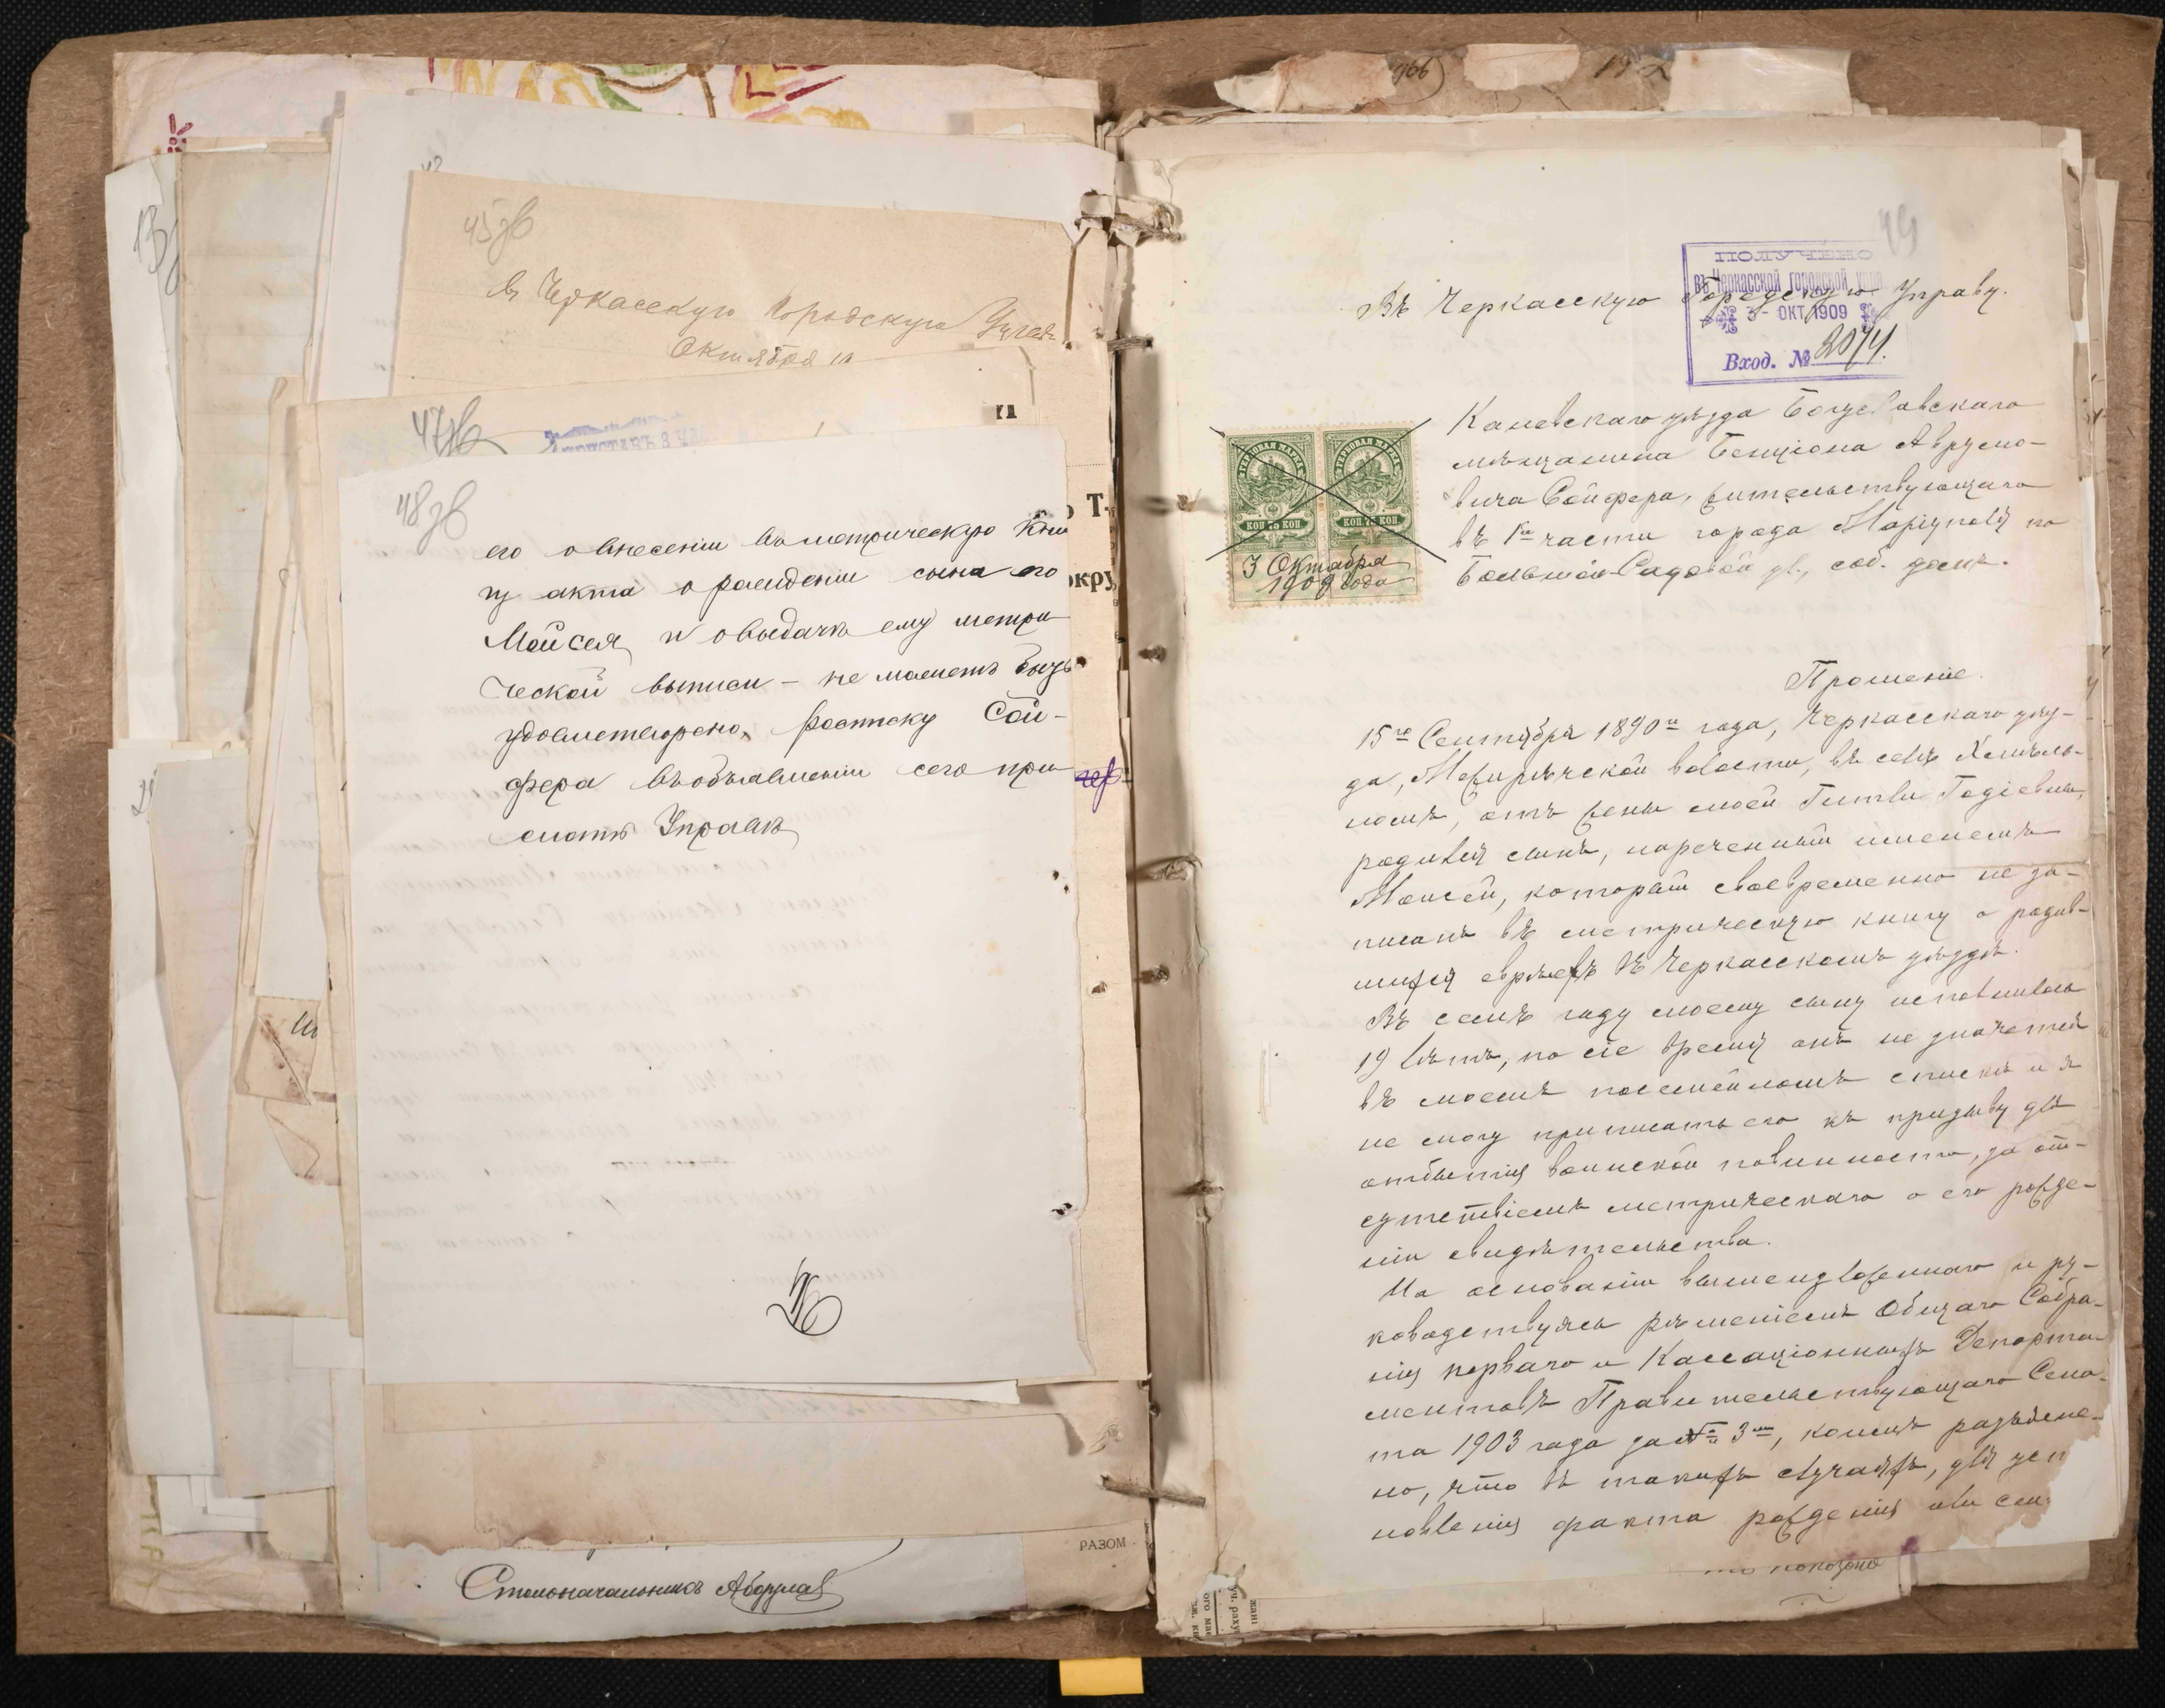 966
19
13
42
45 зв
въ Черкасскую Городскую Управ
Октября
47 зв
Приставъ 3 ча
48 зв
его о внесеніи въ метрическую кни
гу акта о рожденіи сына его
Мойсея и о выдачѣ ему метри
ческой выписи - не можетъ быть
удовлетворено, росписку Сой-
фера въ объявленіи сего при
слать Управѣ
Т.
окру
РАЗОМ
Столоначальникъ
49
ПОЛУЧЕНО
въ Черкасской городской упр
3 - ОКТ 1909
Вход. № 2074.
Въ Черкасскую Городскую Управу.
Каневскаго уѣзда Богуславскаго
мѣщанина Бенціона Аврумо-
вича Сойфера, жительствующаго
въ 1й части города Маріуполя по
Большой Садовой ул., соб. домъ.
ГЕРБОВАЯ МАРКА
ГЕРБОВАЯ МАРКА
КОП 75 КОП
КОП 75 КОП
3 Октября
1909 года
Прошеніе.
15го Сентября 1890го года, Черкасскаго уѣз-
да, Межиричской волости, въ селѣ Хмѣль-
номъ, отъ жены моей Гитли Годіевны,
родился сынъ, нареченный именемъ
Моисей, который своевременно не за-
писанъ въ метрическую книгу о родив-
шихся евреевъ въ Черкасскомъ уѣздѣ.
Въ семъ году моему сыну исполнилось
19 лѣтъ, по сіе время онъ не значется
въ моемъ посемейномъ спискѣ и я
не могу приписать его къ призыву для
отбытія воинской повинности, за от-
сутствіемъ метрическаго о его рожде-
ніи свидѣтельства.
На основаніи вышеизложеннаго и ру-
ководствуясь рѣшеніемъ Общаго Собра-
нія перваго и Кассаціонныхъ Депорта-
ментовъ Правительствующаго Сена-
та 1903 года за № 3мъ, коимъ разъясне-
но, что въ такихъ случаяхъ, для уст
новленія факта рожденія или см